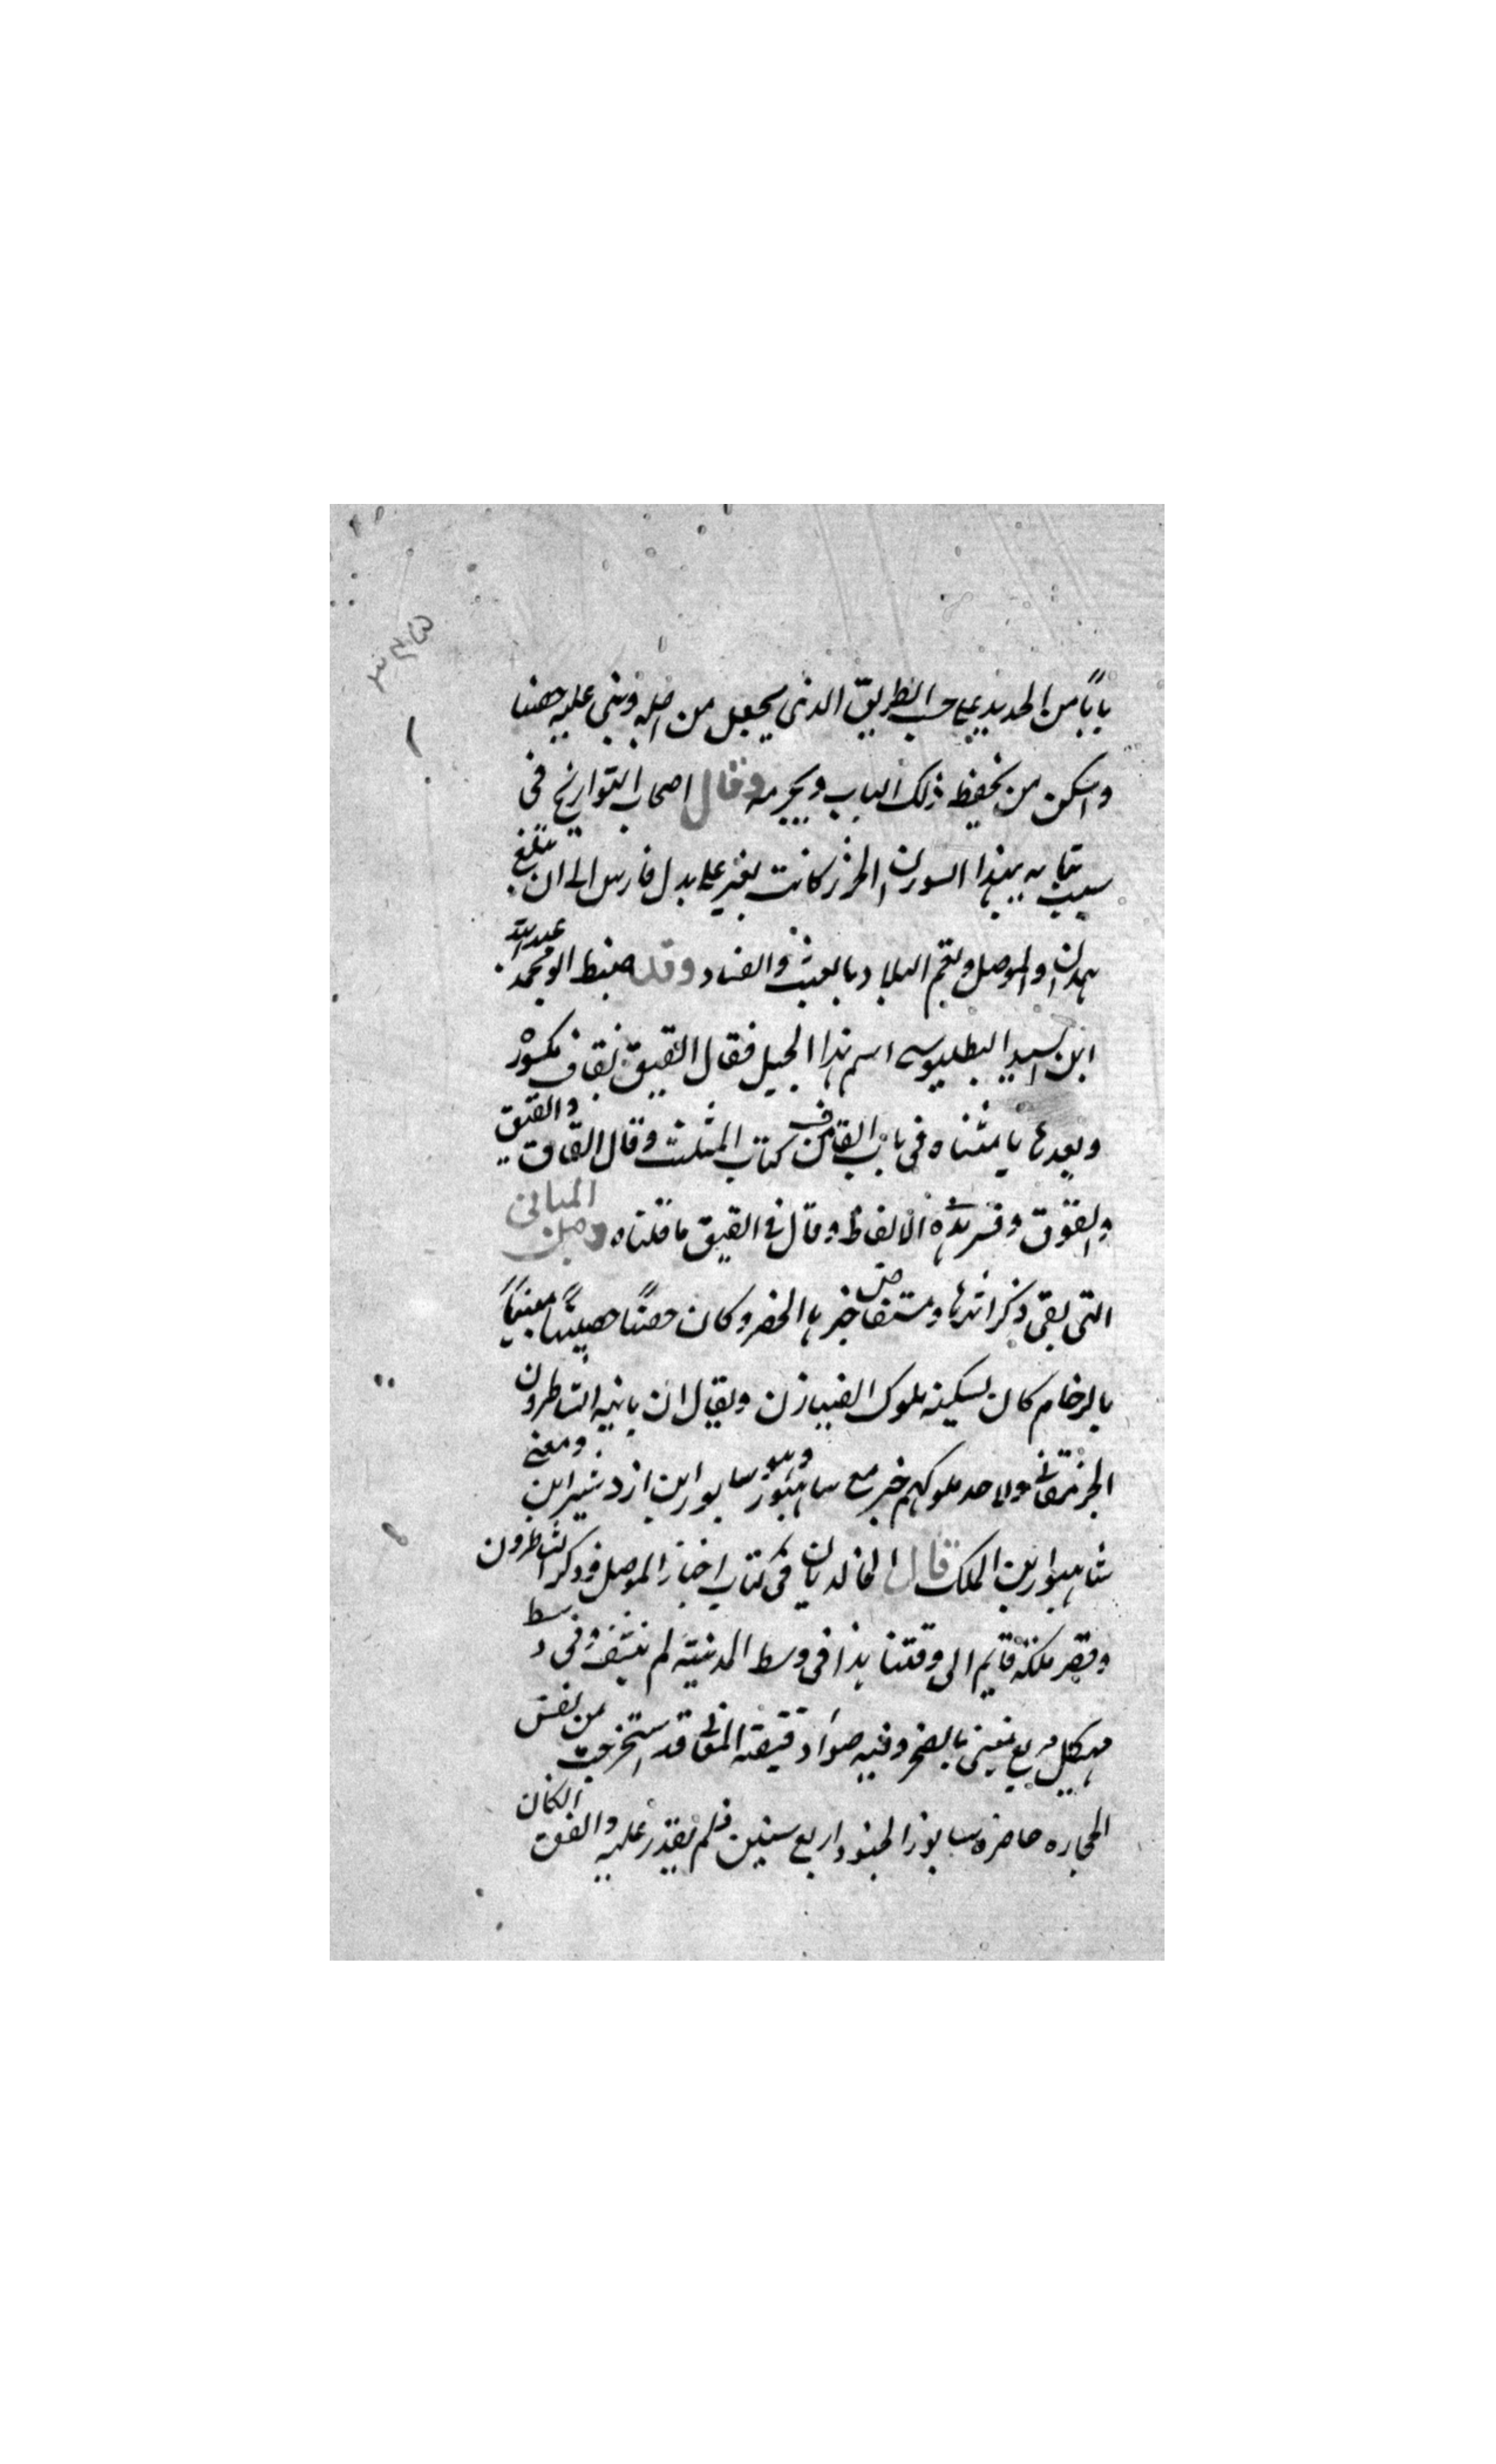 باباً من الحديد على حسب الطريق الذى يجعل من اصله وبنى عليه حصنا
واسكن من يحفظ ذلك الباب ويحرسه وقال اصحاب التواريخ فى
سبب بنايه هذا السور ان الخزر كانت تغير على بدل فارس الى ان تبلغ
همدان والموصل وتعم البلاد بالعبث والفساد وقد ضبط ابو محمد عبد الله
ابن السيد البطليوسى اسم هذا الجبل فقال القيق بقاف مكسورة
وبعدها يا مثناه فى باب القاف من كتاب المثلث وقال القاق والقيق
والقوق وفسر هذه الالفاظ وقال فى القيق ما قلناه ومن المبانى
التى بقى ذكر اثرها ومستفاض خبرها الحضر وكان حصنًا حصينًا مبنيًا
بالرخام كان يسكنه ملوك الضيازن ويقال ان بانيه الساطرون
الجرمقانى ولاحد ملوكهم خبر مع سابور وهو سابور ابن ازدشير ابن ومعنى
شاهبور ابن الملك قال الخالديان فى كتاب اخبار الموصل وذكر الساطرون
وقصر ملكه قايم الى وقتنا هذا فى وسط المدينة لم وفى وسط
هيكل مربع مبنى بالصخر وفيه صور دقيقة المعانى قد استخرجت من نفس
الحجاره حاصره سابور الجنود اربع سنين فلم يقدر عليه واتفق ان كان